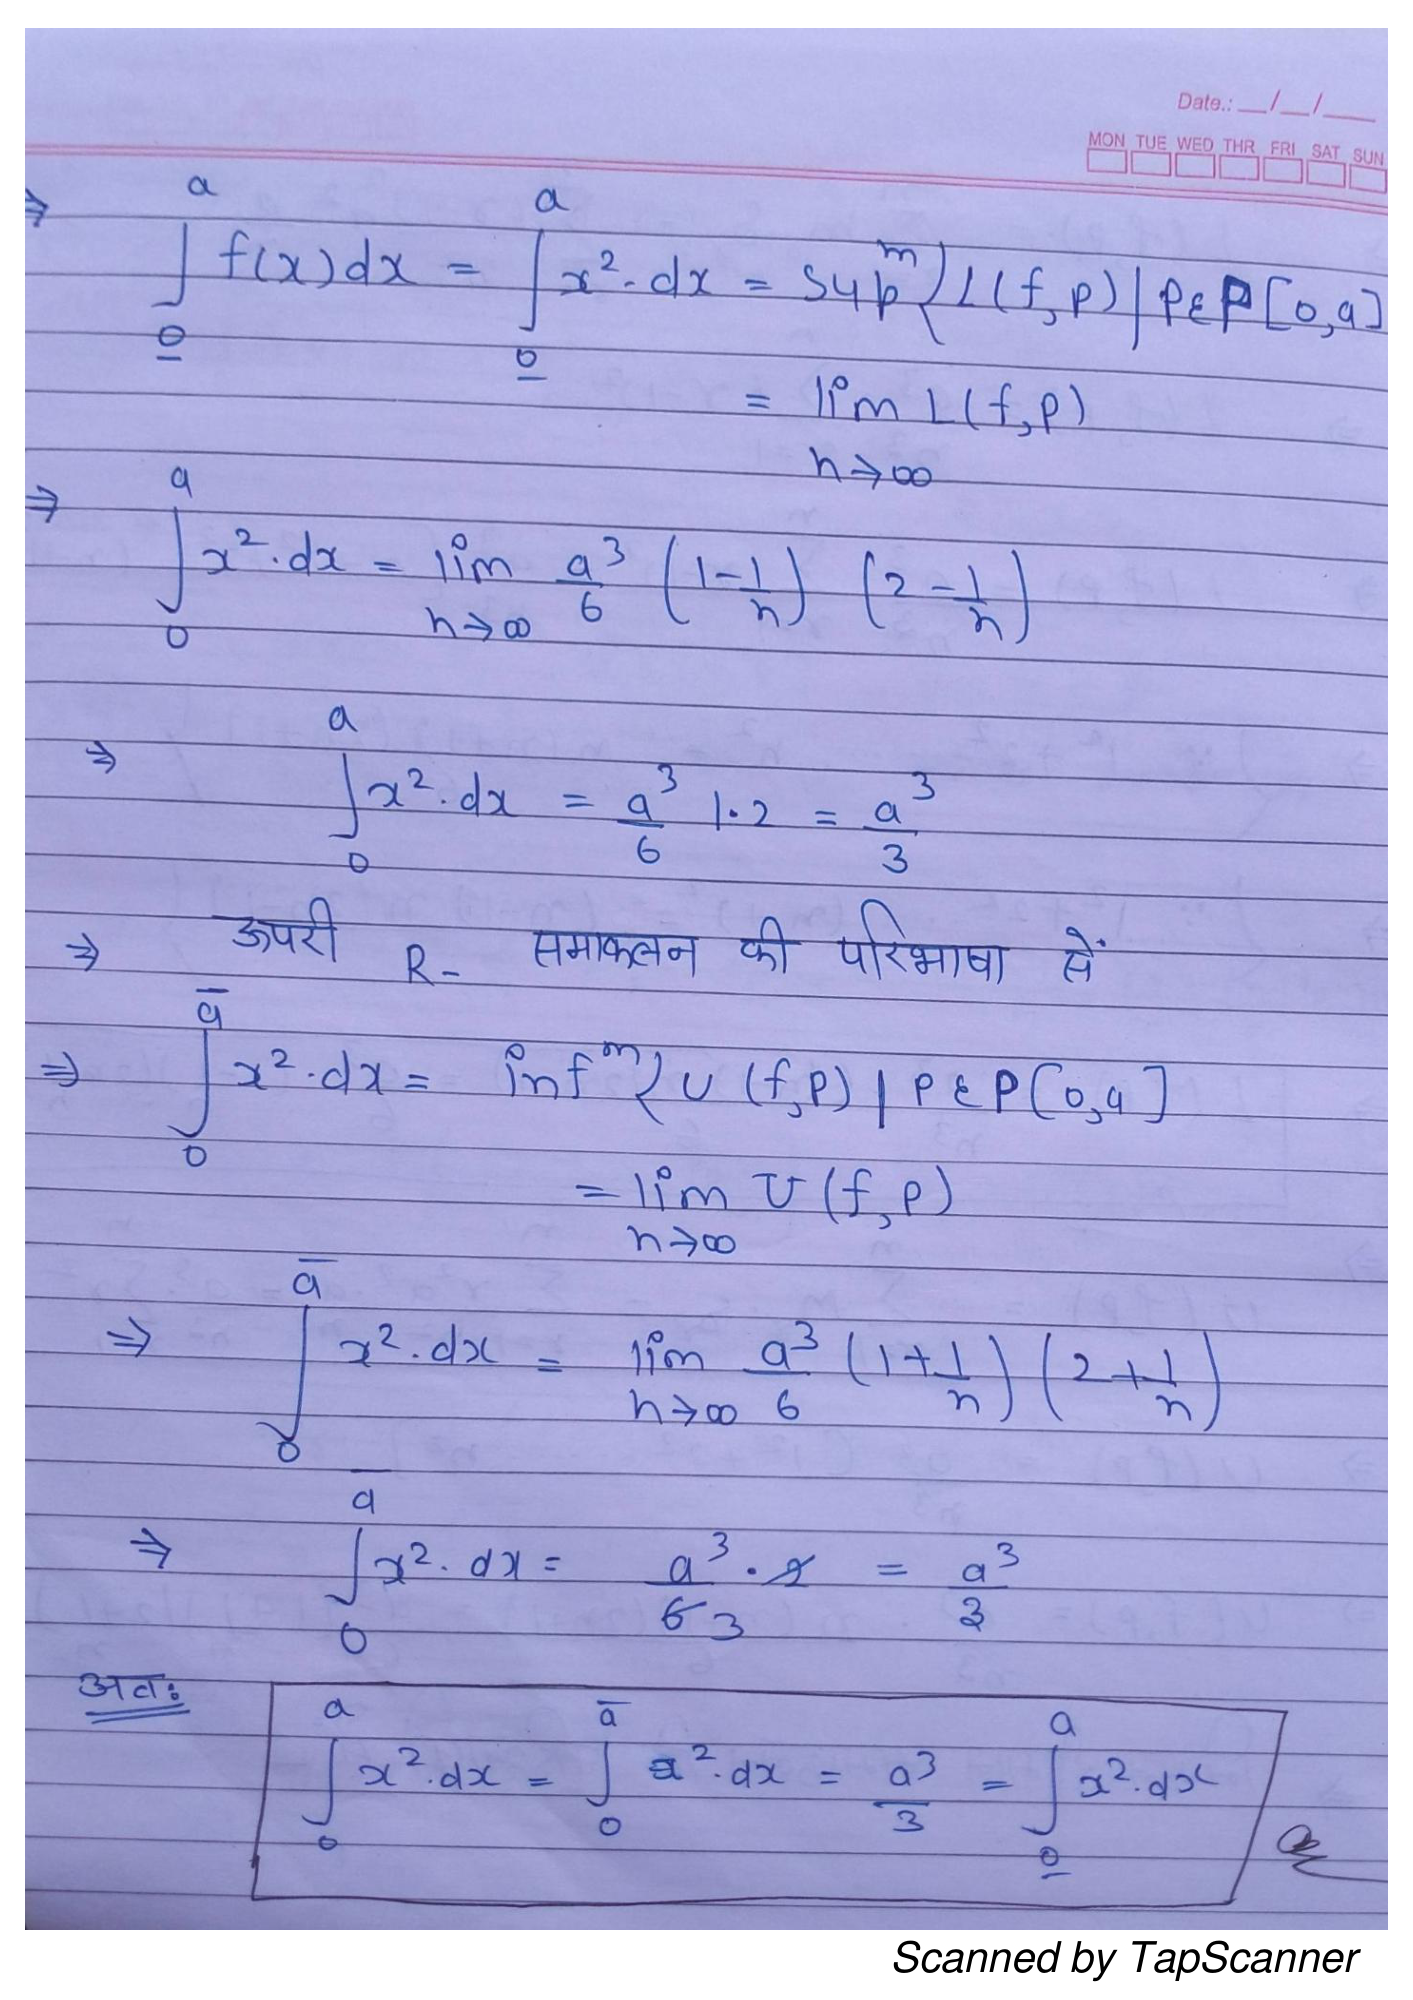 Date.: __/__/___
MON TUE WED THR FRI SAT SUN
⇒ ∫_{\underline{0}}^{a} f(x)dx = ∫_{\underline{0}}^{a} x²·dx = Sup^m {L(f,p) | pεP[0,a]
= lim_{n→∞} L(f,p)
⇒ ∫_{0}^{a} x²·dx = lim_{n→∞} a³/6 (1-1/n) (2-1/n)
⇒ ∫_{0}^{a} x²·dx = a³/6 1·2 = a³/3
⇒ ऊपरी R- समाकलन की परिभाषा सें
⇒ ∫_{0}^{\overline{a}} x²·dx = inf^m {U(f,p) | pεP[0,a]
= lim_{n→∞} U(f,p)
⇒ ∫_{0}^{\overline{a}} x²·dx = lim_{n→∞} a³/6 (1+1/n) (2+1/n)
⇒ ∫_{0}^{\overline{a}} x²·dx = a³/6 3 · 2 = a³/3
अतः ∫_{0}^{a} x²·dx = ∫_{0}^{\overline{a}} x²·dx = a³/3 = ∫_{\underline{0}}^{a} x²·dx
Scanned by TapScanner